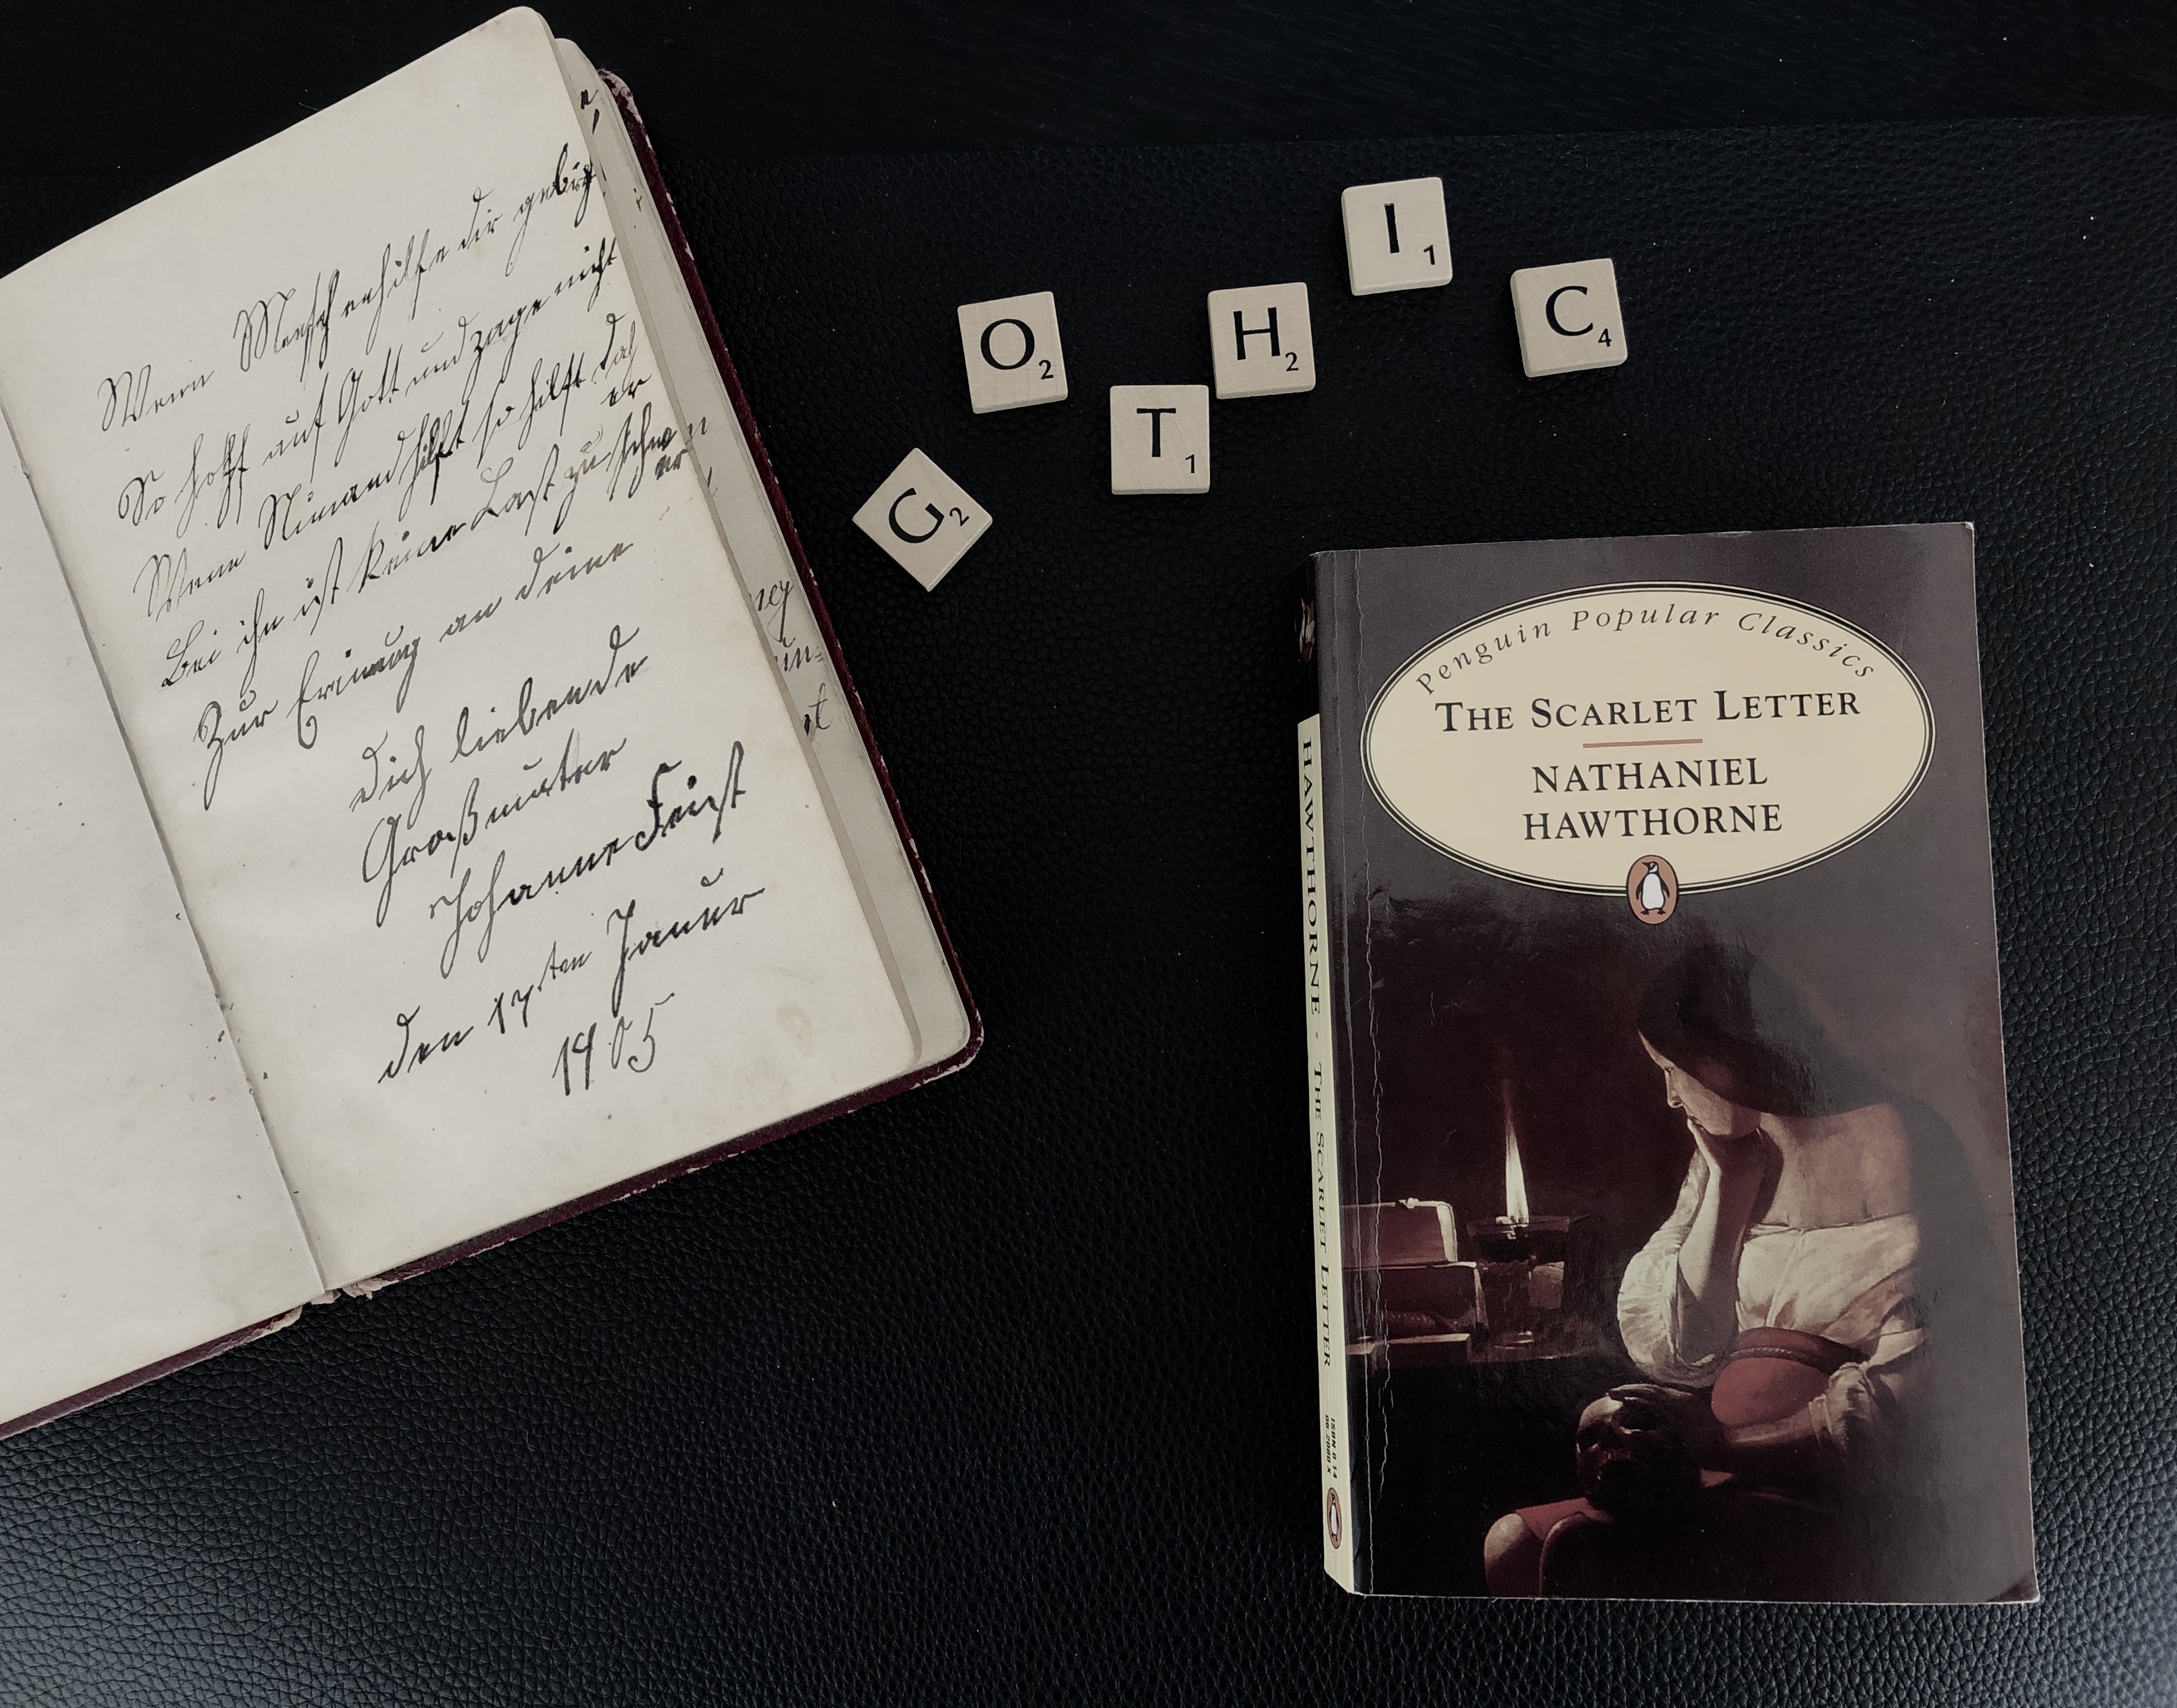 Wenn Menschenhilfe dir gebricht
So hoff auf Gott und zage nicht
Wenn Niemand hilft so hilft doch
er
Bei ihn ist keine Last zu schw
er
Zur Erinnrug an deine
dich liebende
Großmutter
Johanne Feist
den 17ten Januur
1905
G2
O2
T1
H2
I1
C4
Penguin Popular Classics
THE SCARLET LETTER
NATHANIEL
HAWTHORNE
HAWTHORNE · THE SCARLET LETTER
ISBN 0 14